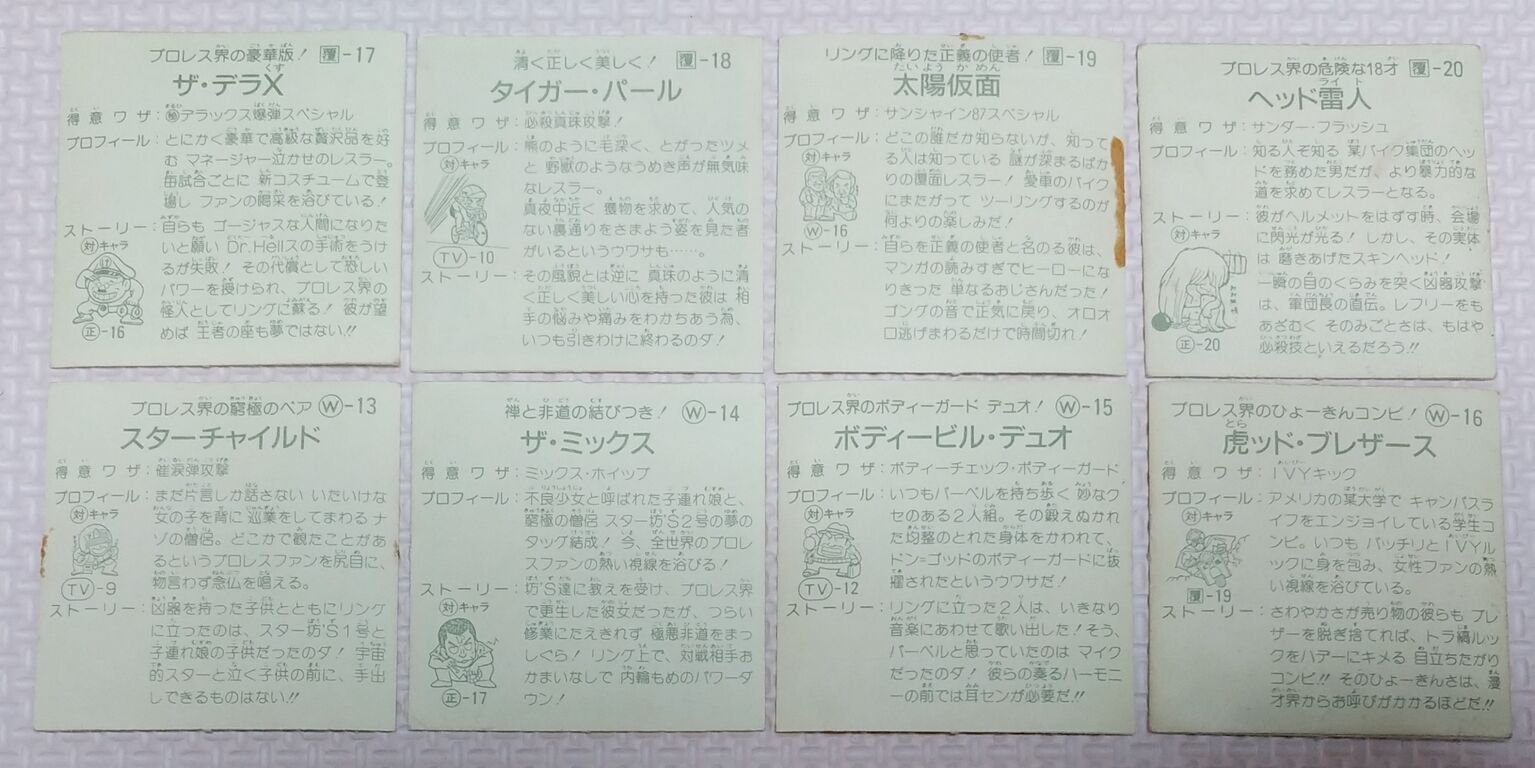 プロレス界の豪華版! 覆-17
ザ・デラX
得意ワザ:㊙デラックス爆弾スペシャル
プロフィール:とにかく豪華で高級な贅沢品を好
む マネージャー泣かせのレスラー。
毎試合ごとに 新コスチュームで登
場し ファンの喝采を浴びている!
ストーリー:自らも ゴージャスな人間になりた
対キャラ
いと願い Dr.Hellスの手術をうけ
るが失敗! その代償として恐しい
パワーを授けられ、プロレス界の
怪人としてリングに蘇る! 彼が望
正-16
めば 王者の座も夢ではない!!
清く正しく美しく! 覆-18
タイガー・パール
得意ワザ:必殺真珠攻撃!
プロフィール:熊のように毛深く、とがったツメ
対キャラ
と 野獣のようなうめき声が無気味
なレスラー。
真夜中近く 獲物を求めて、人気の
ない裏通りをさまよう姿を見た者
TV-10
がいるというウワサも……。
ストーリー:その風貌とは逆に 真珠のように清
く正しく美しい心を持った彼は 相
手の悩みや痛みをわかちあう為、
いつも引きわけに終わるのダ!
リングに降りた正義の使者! 覆-19
太陽仮面
得意ワザ:サンシャイン87スペシャル
プロフィール:どこの誰だか知らないが、知って
対キャラ
る人は知っている 謎が深まるばか
りの覆面レスラー! 愛車のバイク
にまたがって ツーリングするのが
W-16
何よりの楽しみだ!
ストーリー:自らを正義の使者と名のる彼は、
マンガの読みすぎでヒーローにな
りきった 単なるおじさんだった!
ゴングの音で正気に戻り、オロオ
ロ逃げまわるだけで時間切れ!
プロレス界の危険な18才 覆-20
ヘッド雷人
得意ワザ:サンダー・フラッシュ
プロフィール:知る人ぞ知る 某バイク集団のヘッ
ドを務めた男だが、より暴力的な
道を求めてレスラーとなる。
ストーリー:彼がヘルメットをはずす時、会場
対キャラ
に閃光が光る! しかし、その実体
は 磨きあげたスキンヘッド!
一瞬の目のくらみを突く凶器攻撃
は、軍団長の直伝。レフリーをも
あざむく そのみごとさは、もはや
正-20
必殺技といえるだろう!!
プロレス界の窮極のペア W-13
スターチャイルド
得意ワザ:催涙弾攻撃
プロフィール:まだ片言しか話さない いたいけな
対キャラ
女の子を背に 巡業をしてまわるナ
ゾの僧侶。どこかで観たことがあ
るというプロレスファンを尻目に、
TV-9
物言わず念仏を唱える。
ストーリー:凶器を持った子供とともにリング
に立ったのは、スター坊'S1号と
子連れ娘の子供だったのダ! 宇宙
的スターと泣く子供の前に、手出
しできるものはない!!
禅と非道の結びつき! W-14
ザ・ミックス
得意ワザ:ミックス・ホイップ
プロフィール:不良少女と呼ばれた子連れ娘と、
窮極の僧侶 スター坊'S2号の夢の
タッグ結成! 今、全世界のプロレ
スファンの熱い視線を浴びる!
ストーリー:坊'S達に教えを受け、プロレス界
対キャラ
で更生した彼女だったが、つらい
修業にたえきれず 極悪非道をまっ
しぐら! リング上で、対戦相手お
かまいなしで 内輪もめのパワーダ
正-17
ウン!
プロレス界のボディーガード デュオ! W-15
ボディービル・デュオ
得意ワザ:ボディーチェック・ボディーガード
プロフィール:いつもバーベルを持ち歩く 妙なク
対キャラ
セのある2人組。その鍛えぬかれ
た均整のとれた身体をかわれて、
ドン=ゴッドのボディーガードに抜
TV-12
擢されたというウワサだ!
ストーリー:リングに立った2人は、いきなり
音楽にあわせて歌い出した!そう、
バーベルと思っていたのは マイク
だったのダ! 彼らの奏るハーモニ
ーの前では耳センが必要だ!!
プロレス界のひょーきんコンビ! W-16
虎ッド・ブレザース
得意ワザ:IVYキック
プロフィール:アメリカの某大学で キャンパスラ
対キャラ
イフをエンジョイしている学生コ
ンビ。いつも バッチリとIVYル
ックに身を包み、女性ファンの熱
覆-19
い視線を浴びている。
ストーリー:さわやかさが売り物の彼らも ブレ
ザーを脱ぎ捨てれば、トラ縞ルッ
クをハデーにキメる 目立ちたがり
コンビ!! そのひょーきんさは、漫
才界からお呼びがかかるほどだ!!